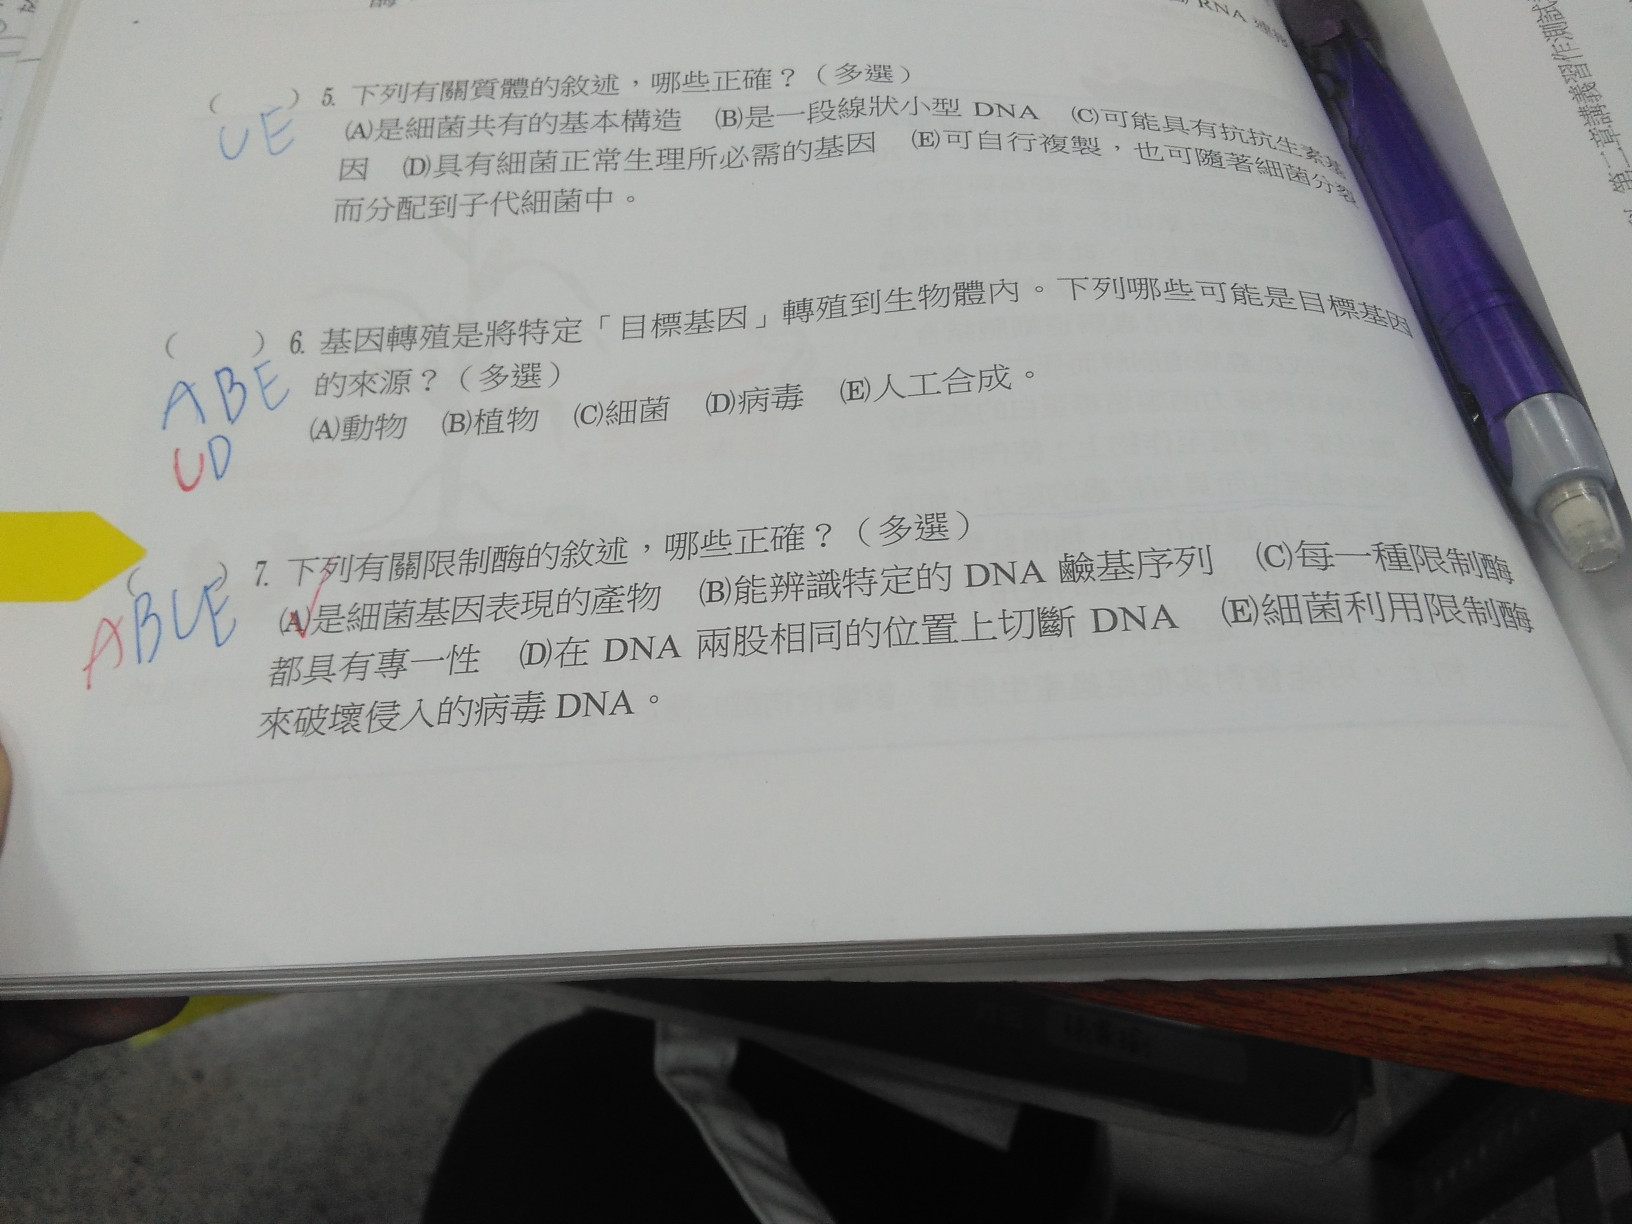 RNA
( ) 5. 下列有關質體的敘述，哪些正確？（多選）
CE
(A)是細菌共有的基本構造 (B)是一段線狀小型 DNA (C)可能具有抗抗生素基
因 (D)具有細菌正常生理所必需的基因 (E)可自行複製，也可隨著細菌分裂
而分配到子代細菌中。
( ) 6. 基因轉殖是將特定「目標基因」轉殖到生物體內。下列哪些可能是目標基因
ABE
的來源？（多選）
CD
(A)動物 (B)植物 (C)細菌 (D)病毒 (E)人工合成。
( ) 7. 下列有關限制酶的敘述，哪些正確？（多選）
ABCE
(A)是細菌基因表現的產物 (B)能辨識特定的 DNA 鹼基序列 (C)每一種限制酶
都具有專一性 (D)在 DNA 兩股相同的位置上切斷 DNA (E)細菌利用限制酶
來破壞侵入的病毒 DNA。
第二章講義習作測試